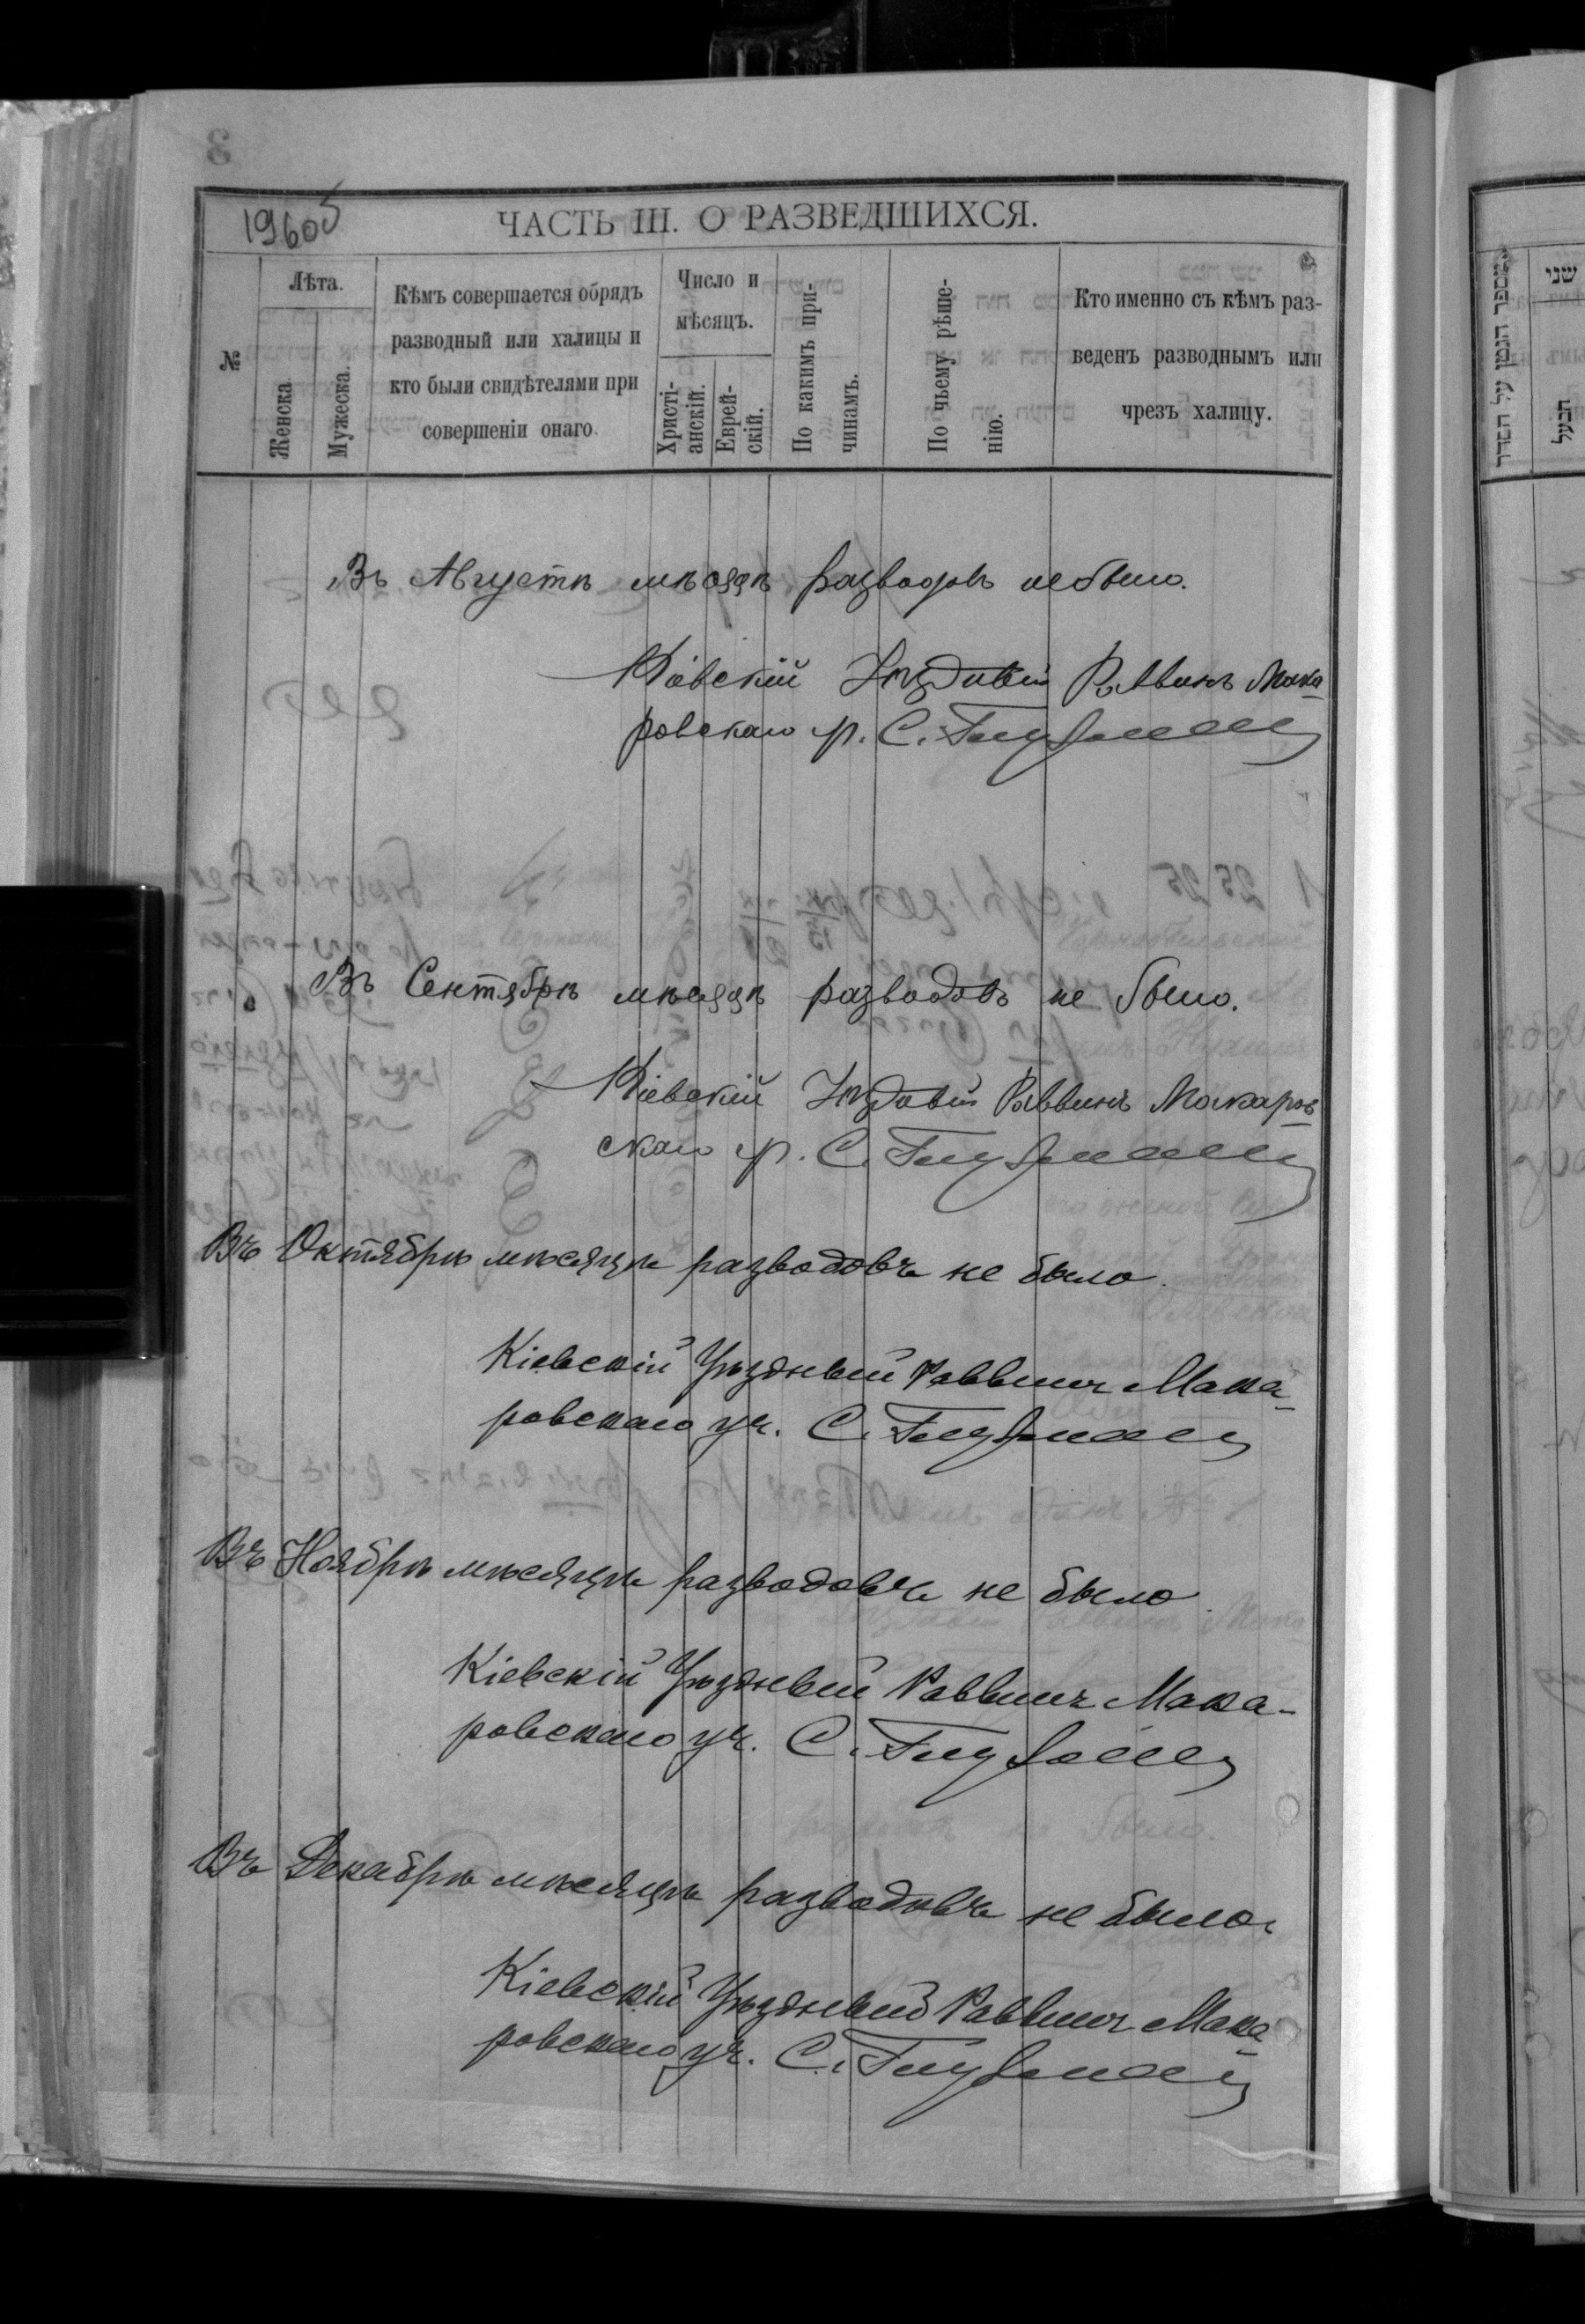 19605
ЧАСТЬ III. О РАЗВЕДШИХСЯ.
№
Лѣта.
Женска
Мужеска.
Кѣмъ совершается обрядъ
разводный или халицы и
кто были свидѣтелями при
совершеніи онаго.
Число и
мѣсяцъ.
Христі-
анскій.
Еврей-
скій.
По какимъ при-
чинамъ.
По чьему рѣше-
нію.
Кто именно съ кѣмъ раз-
веденъ разводнымъ или
чрезъ халицу.
Въ Августѣ мѣсяцѣ разводовъ небыло.
Кіевскій Уѣздный Раввинъ Мака-
ровскаго уч. С.
Въ Сентябрѣ мѣсяцѣ разводовъ не было.
Кіевскій Уѣздный Раввинъ Макаров-
скаго уч. С.
Въ Октябрѣ мѣсяцѣ разводовъ не было.
Кіевскій Уѣздный Раввинъ Мака-
ровскаго уч. С.
Въ Ноябрѣ мѣсяцѣ разводовъ не было.
Кіевскій Уѣздный Раввинъ Мака-
ровскаго уч. С.
Въ Декабрѣ мѣсяцѣ разводовъ не было.
Кіевскій Уѣздный Раввинъ Мака-
ровскаго уч. С.
שני
הבעל